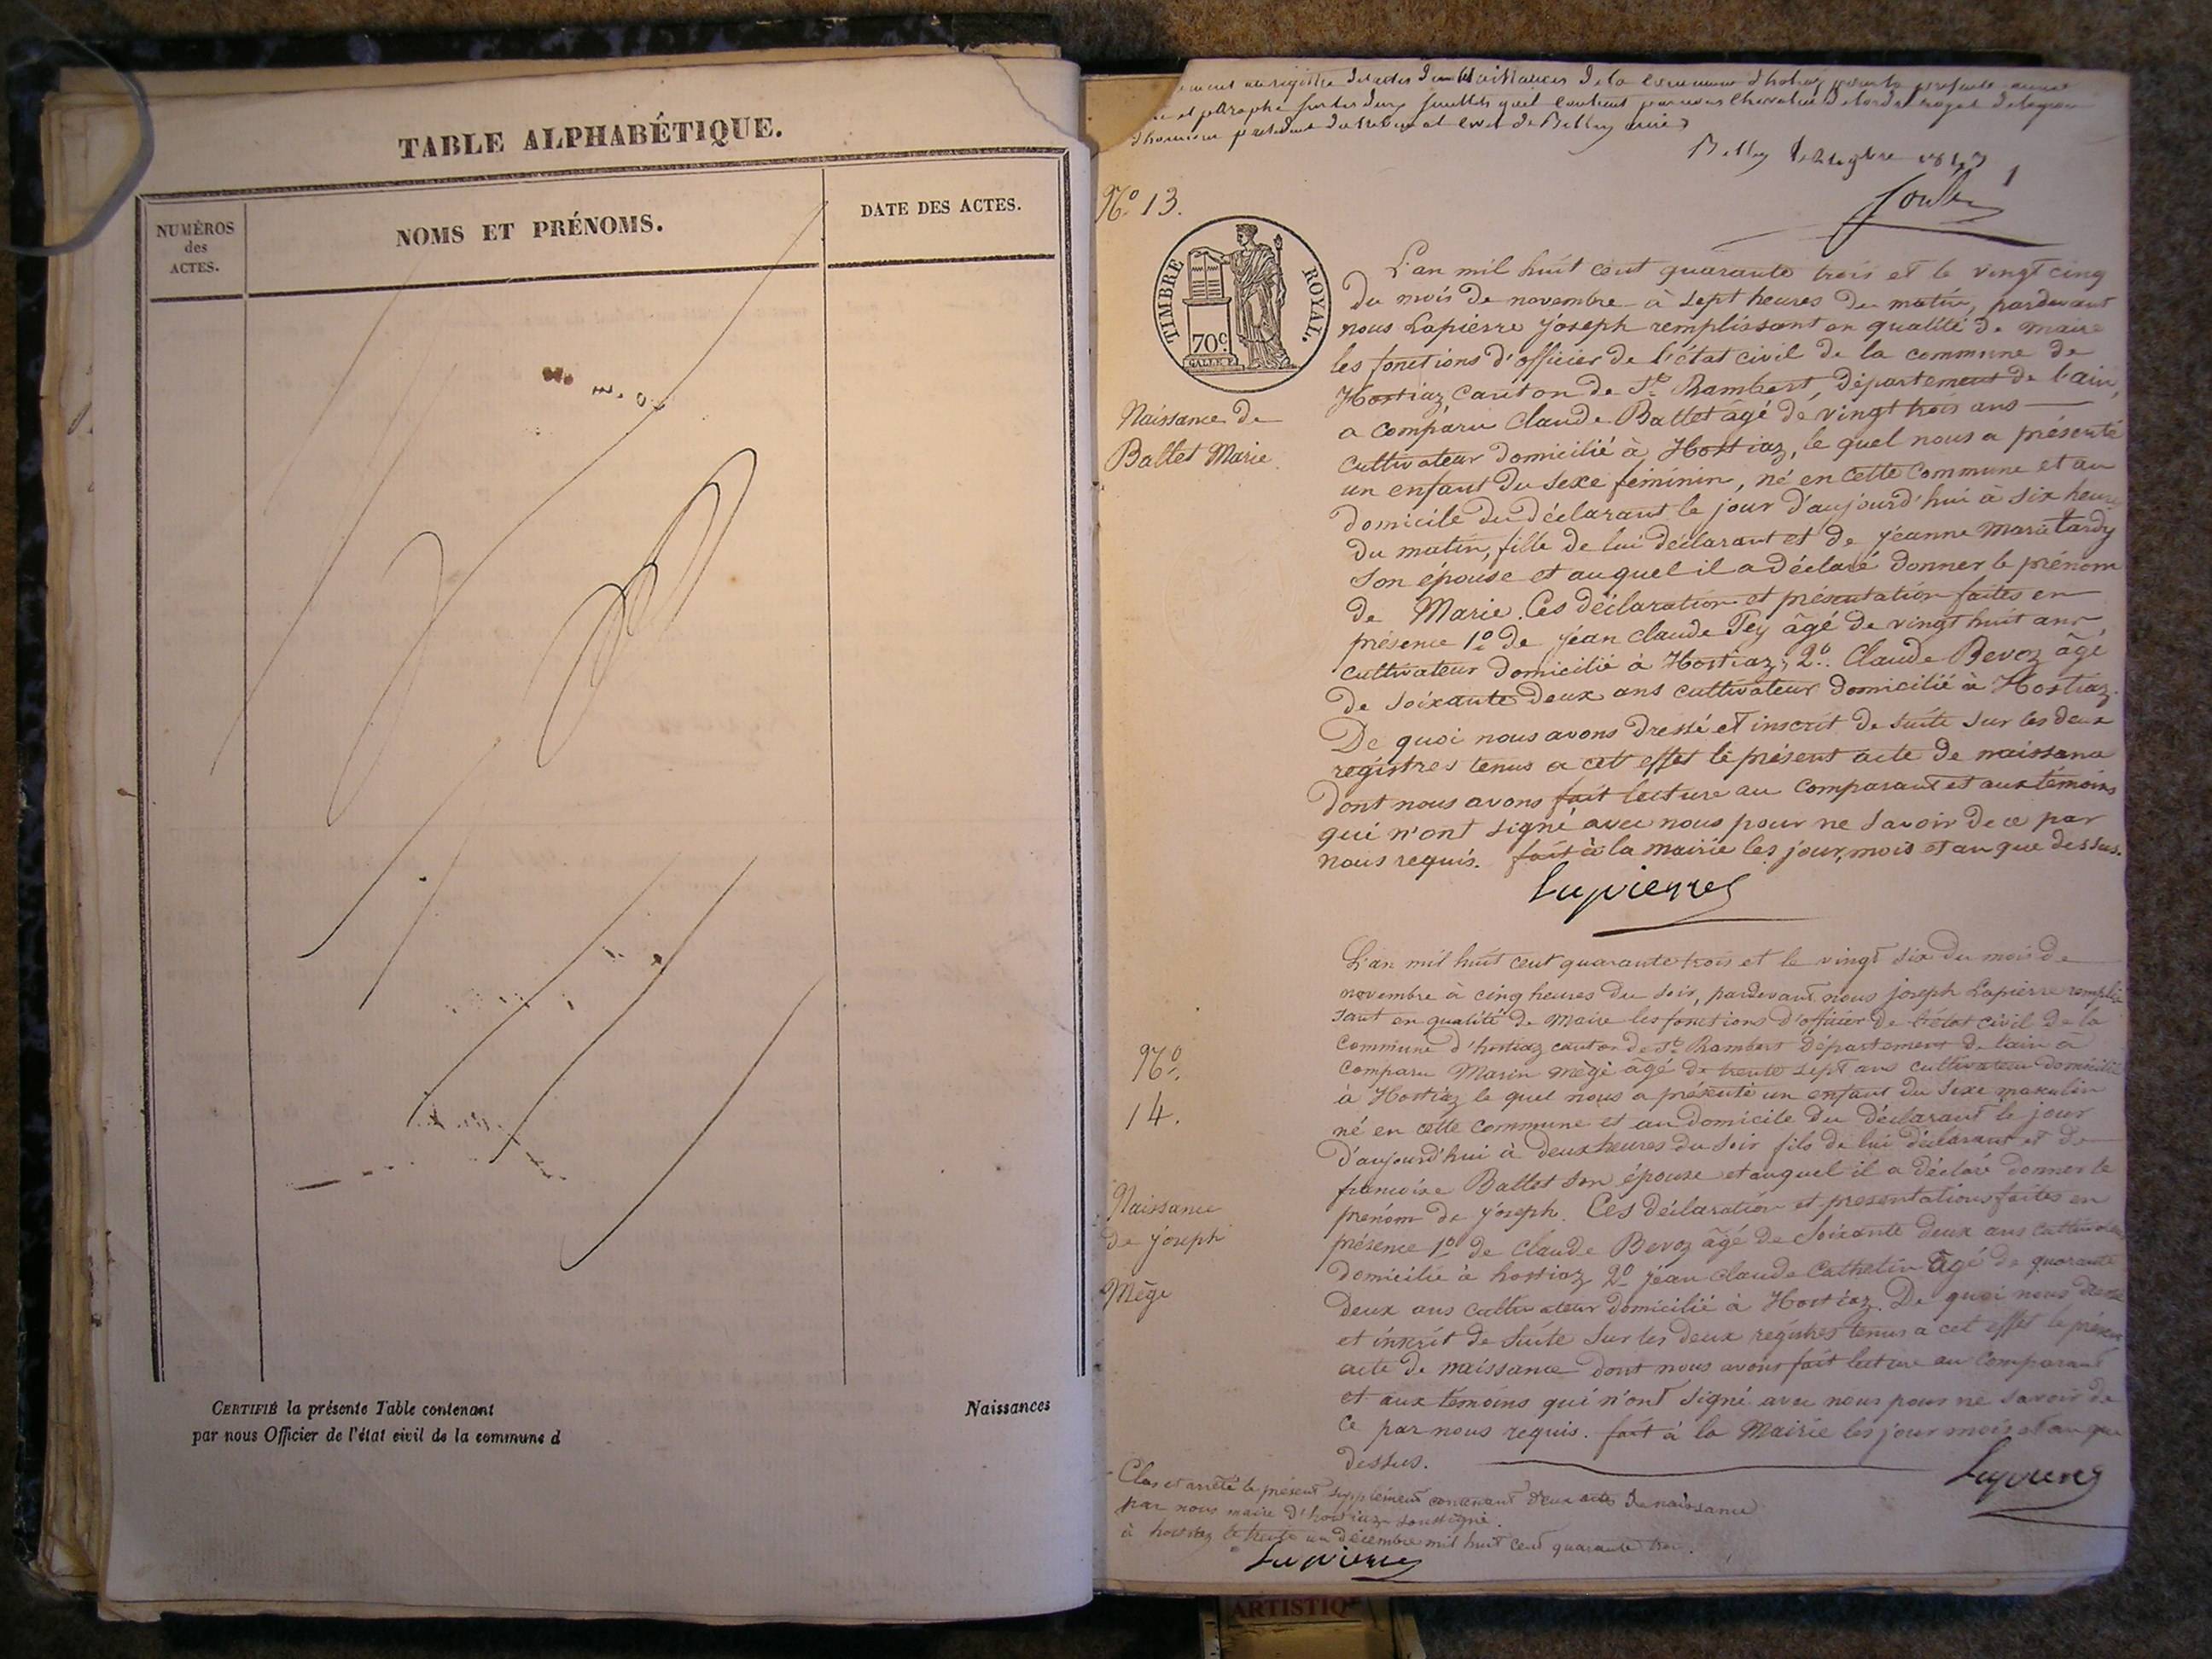 TABLE ALPHABÉTIQUE.
NUMÉROS
des
ACTES.
NOMS ET PRÉNOMS.
DATE DES ACTES.
CERTIFIÉ la présente Table contenant
Naissances
par nous Officier de l'état civil de la commune d
registre des actes de Naissances de la commune d'hostiaz pour la présente année
et paraphé par nous Chevalier de l'ordre royal de la légion
d'honneur président du tribunal civil de Belley
Belley 1843
1
N.º 13.
TIMBRE ROYAL.
70c.
Naissance de
Ballet Marie
L'an mil huit cent quarante trois et le vingt cinq
du mois de novembre à sept heures du matin, pardevant
nous Lapierre joseph remplissant en qualité de maire
les fonctions d'officier de l'état civil de la commune de
Hostiaz canton de St. Rambert, département de l'ain,
a comparu Claude Ballet âgé de vingt trois ans
cultivateur domicilié à Hostiaz, le quel nous a présenté
un enfant du sexe féminin, né en cette commune et au
domicile du déclarant le jour d'aujourd'hui à six heures
du matin, fille de lui déclarant et de jéanne marie tardy
son épouse et auquel il a déclaré donner le prénom
de Marie. Ces déclaration et présentation faites en
présence 1º de jéan claude Fey âgé de vingt huit ans,
cultivateur domicilié à Hostiaz, 2º. Claude Bevoz âgé
de soixante deux ans cultivateur domicilié à Hostiaz.
De quoi nous avons dressé et inscrit de suite sur les deux
registres tenus a cet effet le présent acte de naissance
dont nous avons fait lecture au comparant et aux témoins
qui n'ont signé avec nous pour ne savoir de ce par
nous requis. fait à la mairie les jour, mois et an que dessus.
Lapierre
N.º
14.
Naissance
de joseph
Mège
L'an mil huit cent quarante trois et le vingt six du mois de
novembre à cinq heures du soir, pardevant nous joseph Lapierre remplis
sant en qualité de maire les fonctions d'officier de l'état civil de la
commune d'hostiaz canton de St. Rambert département de l'ain a
comparu Marin mège âgé de trente sept ans cultivateur domicilié
à Hostiaz le quel nous a présenté un enfant du sexe masculin
né en cette commune et au domicile du déclarant le jour
d'aujourd'hui à deux heures du soir fils de lui déclarant et de
françoise Ballet son épouse et auquel il a déclaré donner le
prénom de joseph. Ces déclaration et presentations faites en
présence 1º de claude Bevoz âgé de soixante deux ans cultivateur
domicilié à hostiaz 2º jéan claude Cathelin âgé de quarante
deux ans cultivateur domicilié à Hostiaz. De quoi nous dressé
et inscrit de suite sur les deux registres tenus a cet effet le présent
acte de naissance dont nous avons fait lecture au comparant
et aux témoins qui n'ont signé avec nous pour ne savoir de
ce par nous requis. fait à la Mairie les jour mois et an que
dessus.
Lapierre
Clos et arrêté le présent supplément contenant deux actes de naissance
par nous maire d'hostiaz soussigné.
à hostiaz le trente un décembre mil huit cent quarante trois.
Lapierre
ARTISTIQ